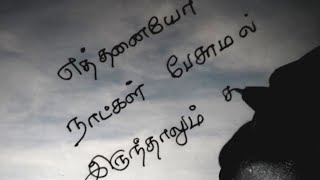 எத்தனையோ
நாட்கள் பேசாமல்
இருந்தாலும்